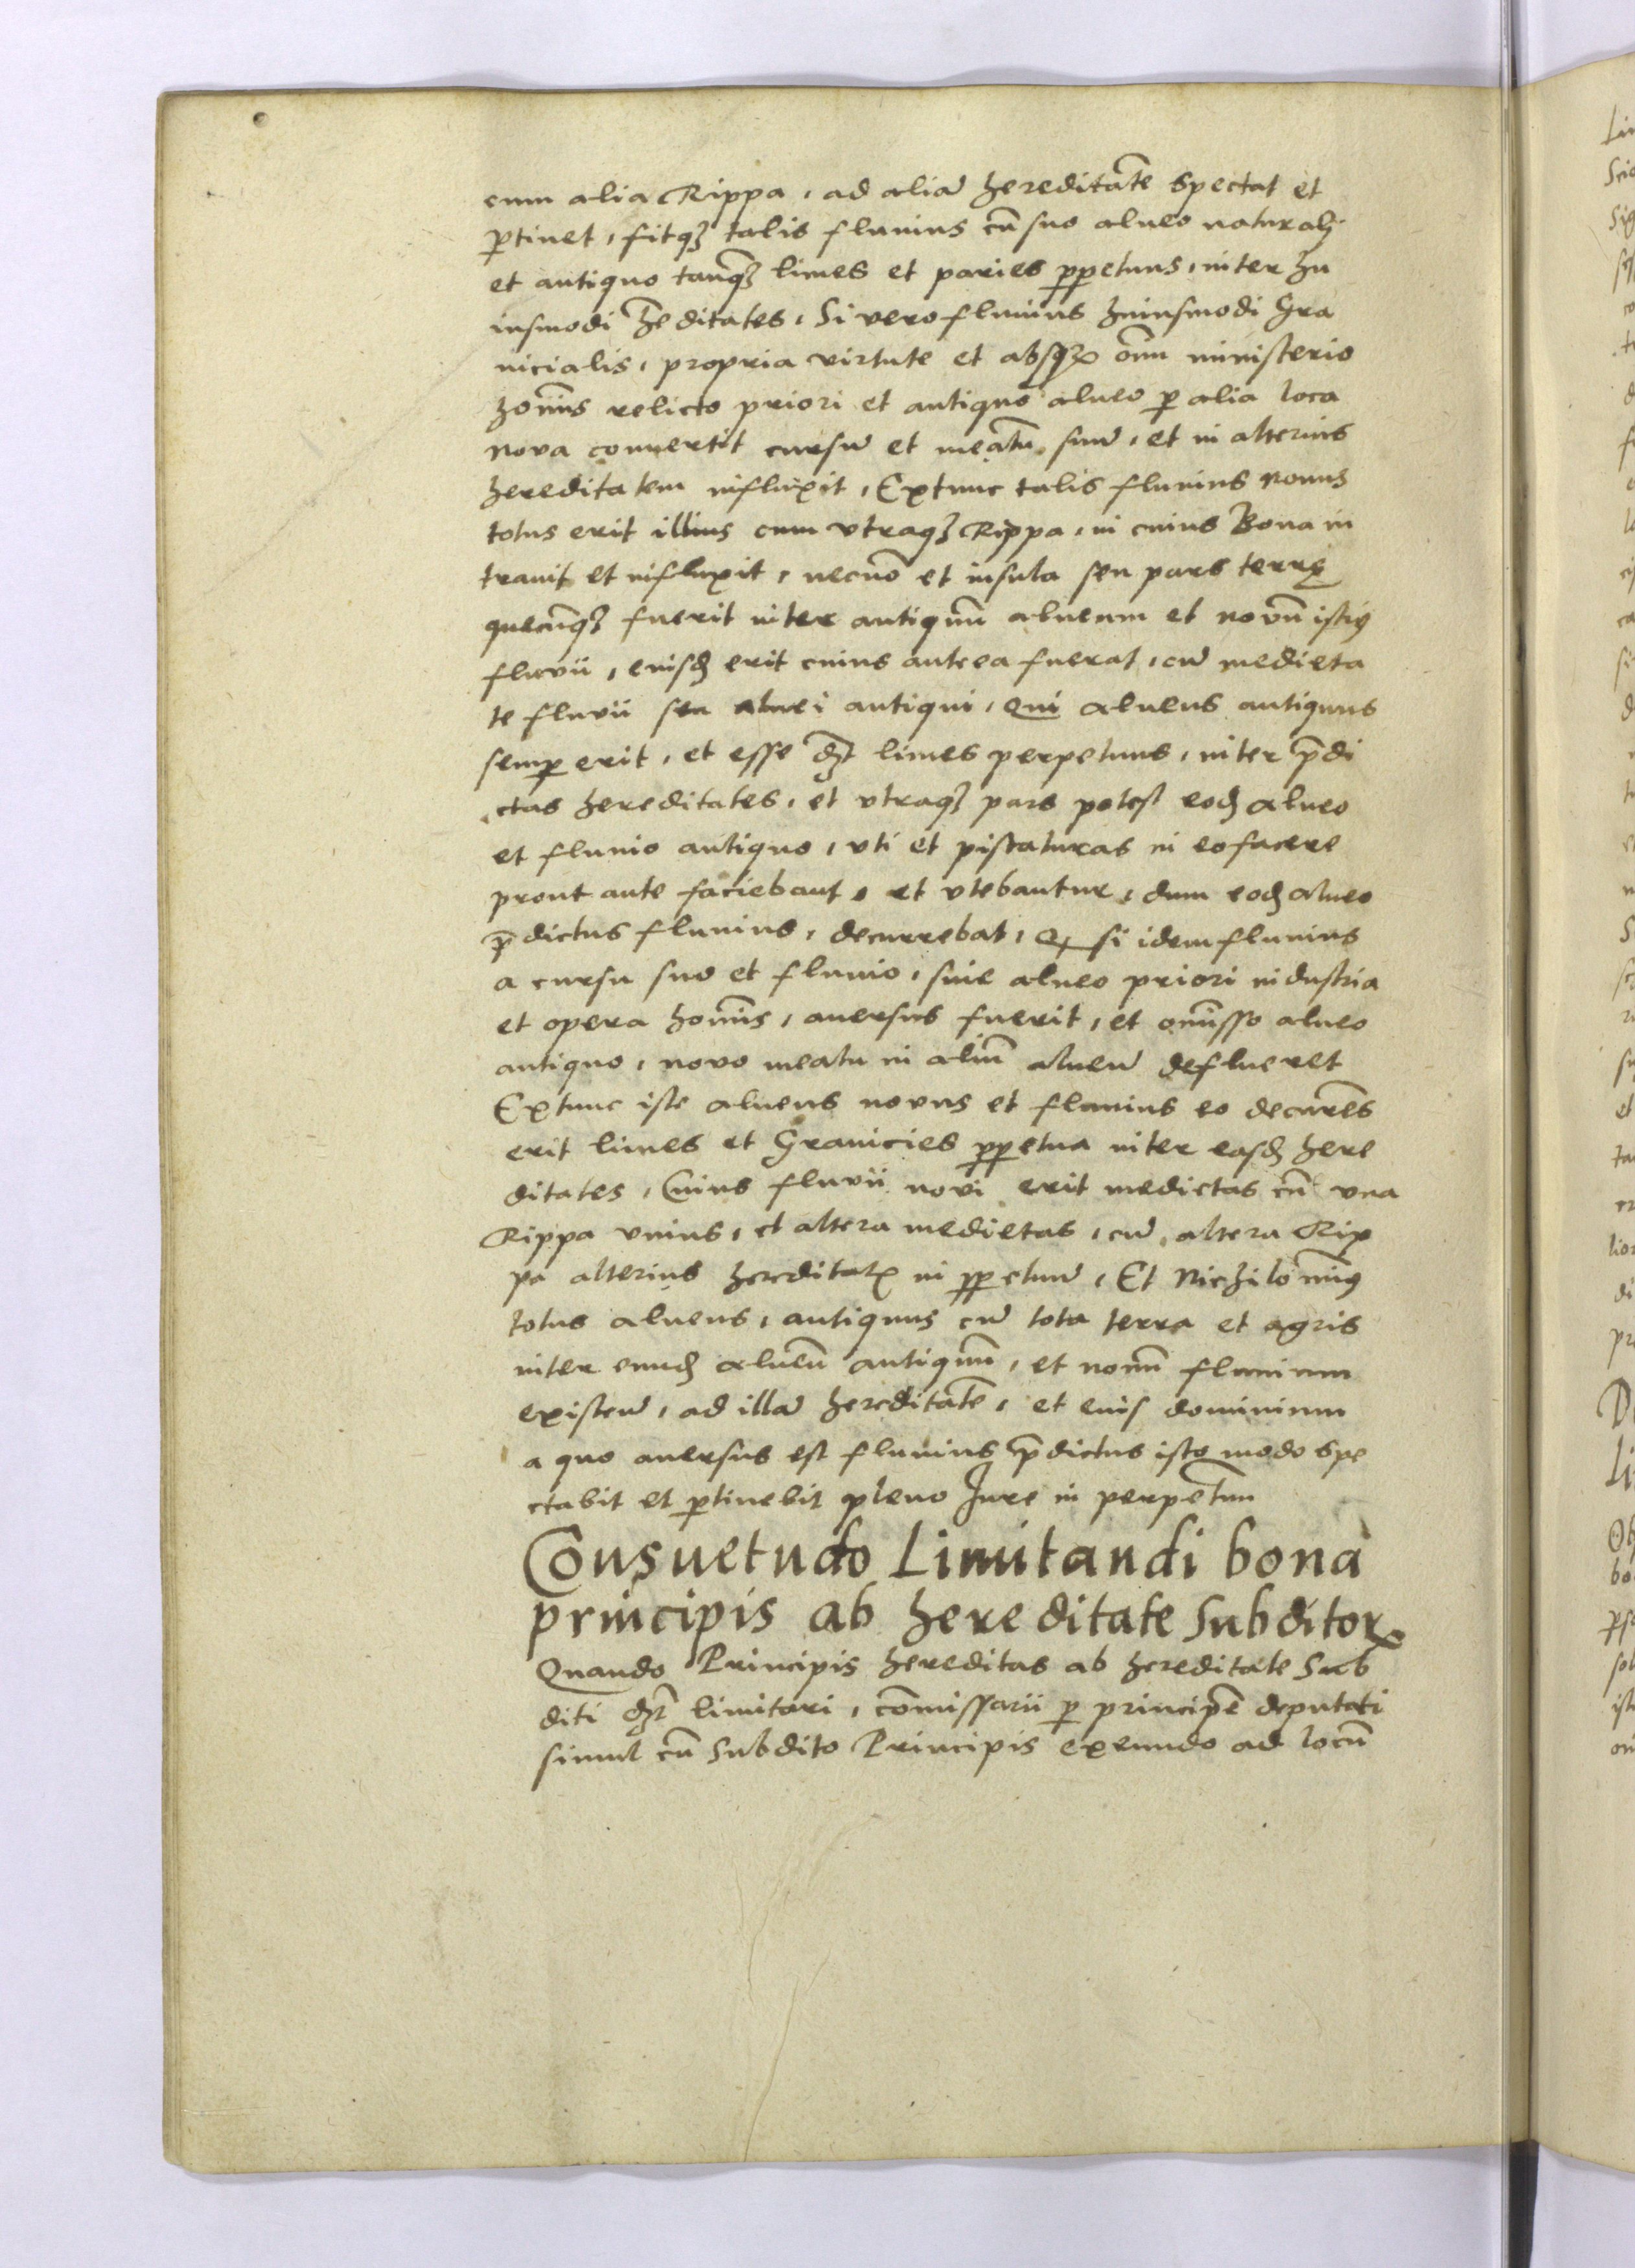 cum alia Rippa, ad aliā hereditatē spectat et
ꝑtinet, fitqꝫ talis fluuius cū suo alueo naturalj
et antiquo tanqꝫ limes et paries ꝑpetuus, inter hu
iusmodi hēditates, Si vero fluuius huiusmodi Gra
nicialis, propria virtute et absqꝫ om̄i ministerio
homīs relicto priori et antiquo alueo ꝑ alia loca
nova conuertit cursū et meatū suū, et in alterius
hereditatem influxit, Extunc talis fluuius nouus
totus erit illius cum vtraqꝫ Rippa, in cuius Bona in
trauit et influxit, necnō et insula seu pars terrę
quecūqꝫ fuerit inter antiquū alueum et novū istiꝰ
fluvii, euisđ erit cuius antea fuerat, cū medieta
te fluvii seu aluei antiqui, Qui alueus antiquus
semꝑ erit, et esse dꝫt limes perpetuus, inter p̄di
ctas hereditates, et vtraqꝫ pars potest eođ alueo
et fluuio antiquo, vti et piscaturas in eo facere
prout ante faciebant, et vtebantur, dum eođ alueo
p̄dictus fluuius, decurrebat, Qꝫ si idem fluuius
a cursu suo et fluuio, siue alueo priori industria
et opera homīs, auersus fuerit, et omīsso alueo
antiquo, novo meatu in aliū alueū deflueret
Extunc iste alueus novus et fluuius eo decurrēs
erit limes et Granicies ꝑpetua inter easđ here
ditates, Cuius fluvii novi erit medietas cū vna
Rippa vnius, et altera medietas, cū altera Rip
pa alterius hereditatꝭ in ꝑpetuū, Et Nichilomīꝰ
totus alueus, antiquus cū tota terra et agris
inter eunđ alueū antiquū, et nouū fluuium
existeñ, ad illā hereditatē, et euis dominium
a quo auersus est fluuius p̄dictus isto modo spe
ctabit et ꝑtinebit pleno Jure in perpetuū
Consuetudo Limitandi bona
principis ab hereditate Subditoꝝ
Quando Principis hereditas ab hereditate Sub
diti dꝫt limitari, cōmissarii ꝑ principē deputati
simul cū Subdito Principis exeundo ad locū